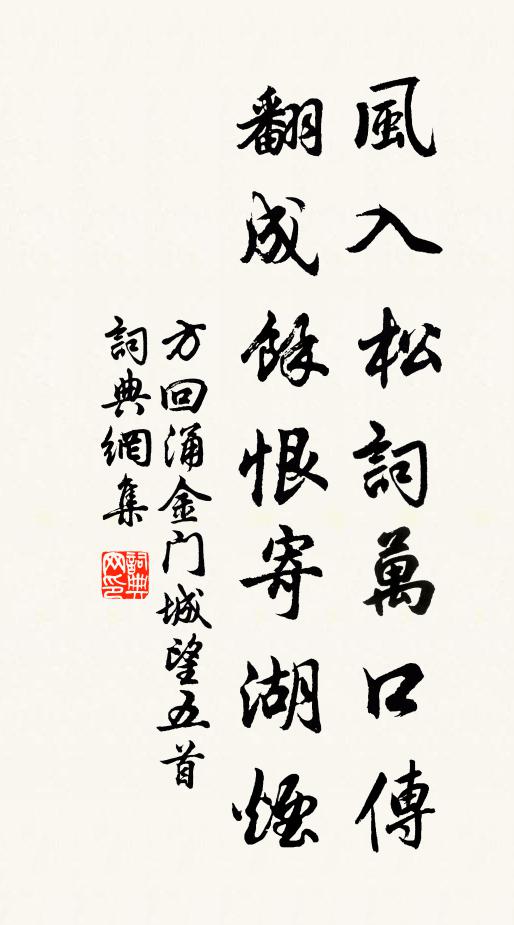 風入松詞萬口傳
翻成餘恨寄湖煙
方回涌金门城望五首
詞典網集
詞典网印